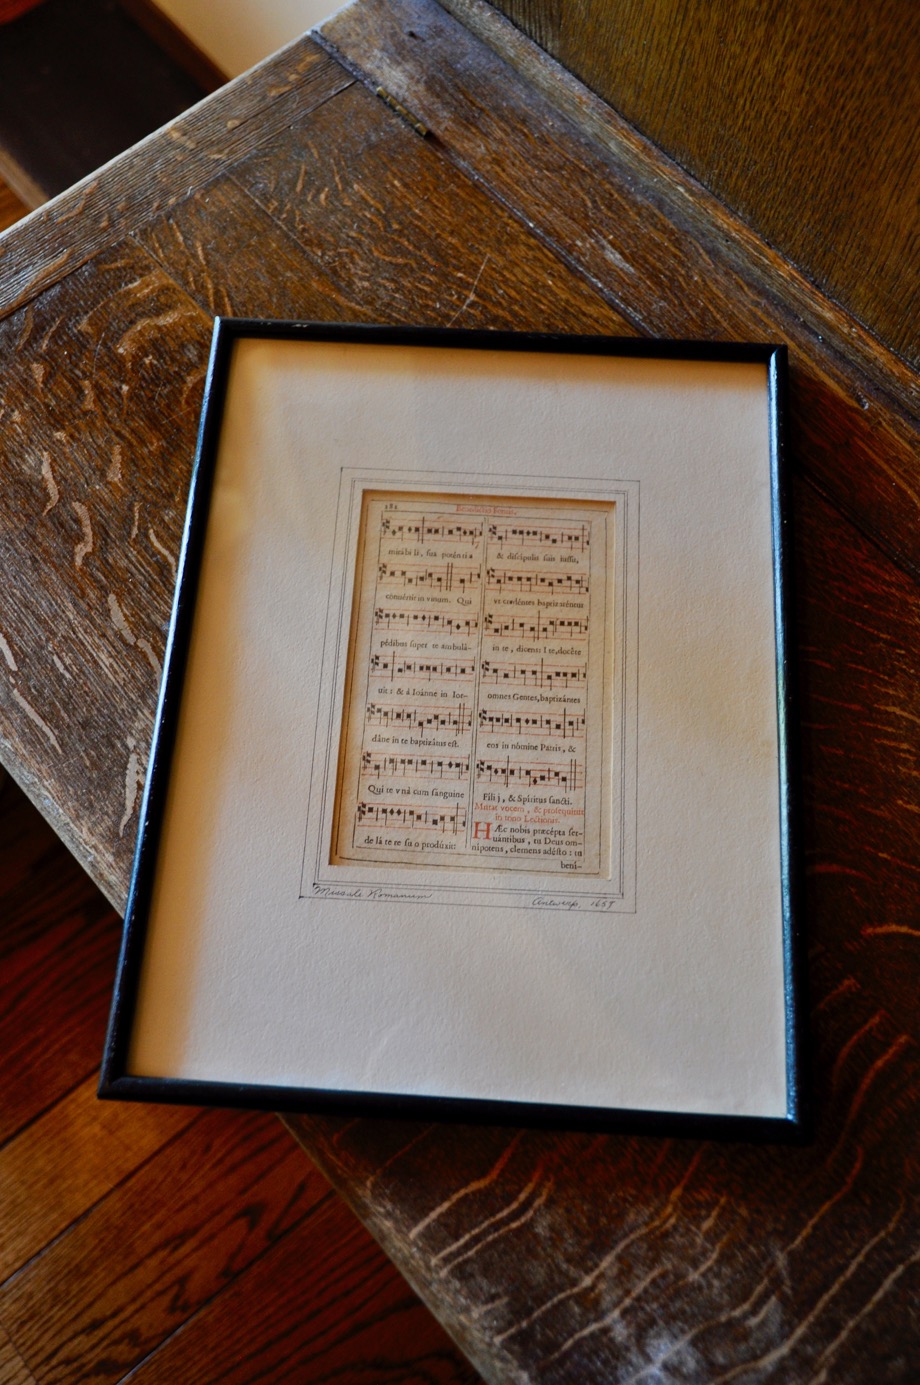 Benedictio Fontis.
mirábili, sua poténtia,
convértit in vinum. Qui
pédibus super te ambulá-
uit: & à Ioánne in Ior-
dáne in te baptizátus est.
Qui te vnà cum sánguine
de látere suo prodúxit:
& discípulis suis iussit,
vt credéntes baptizaréntur
in te, dicens: Ite, docéte
omnes Gentes, baptizántes
eos in nómine Patris, &
Filij, & Spíritus sancti.
Mutat vocem, & prosequitur
in tono Lectionis.
HÆc nobis præcépta ser-
uántibus, tu Deus om-
nípotens, clemens adésto: tu
bení-
Missale Romanum
Antwerp,